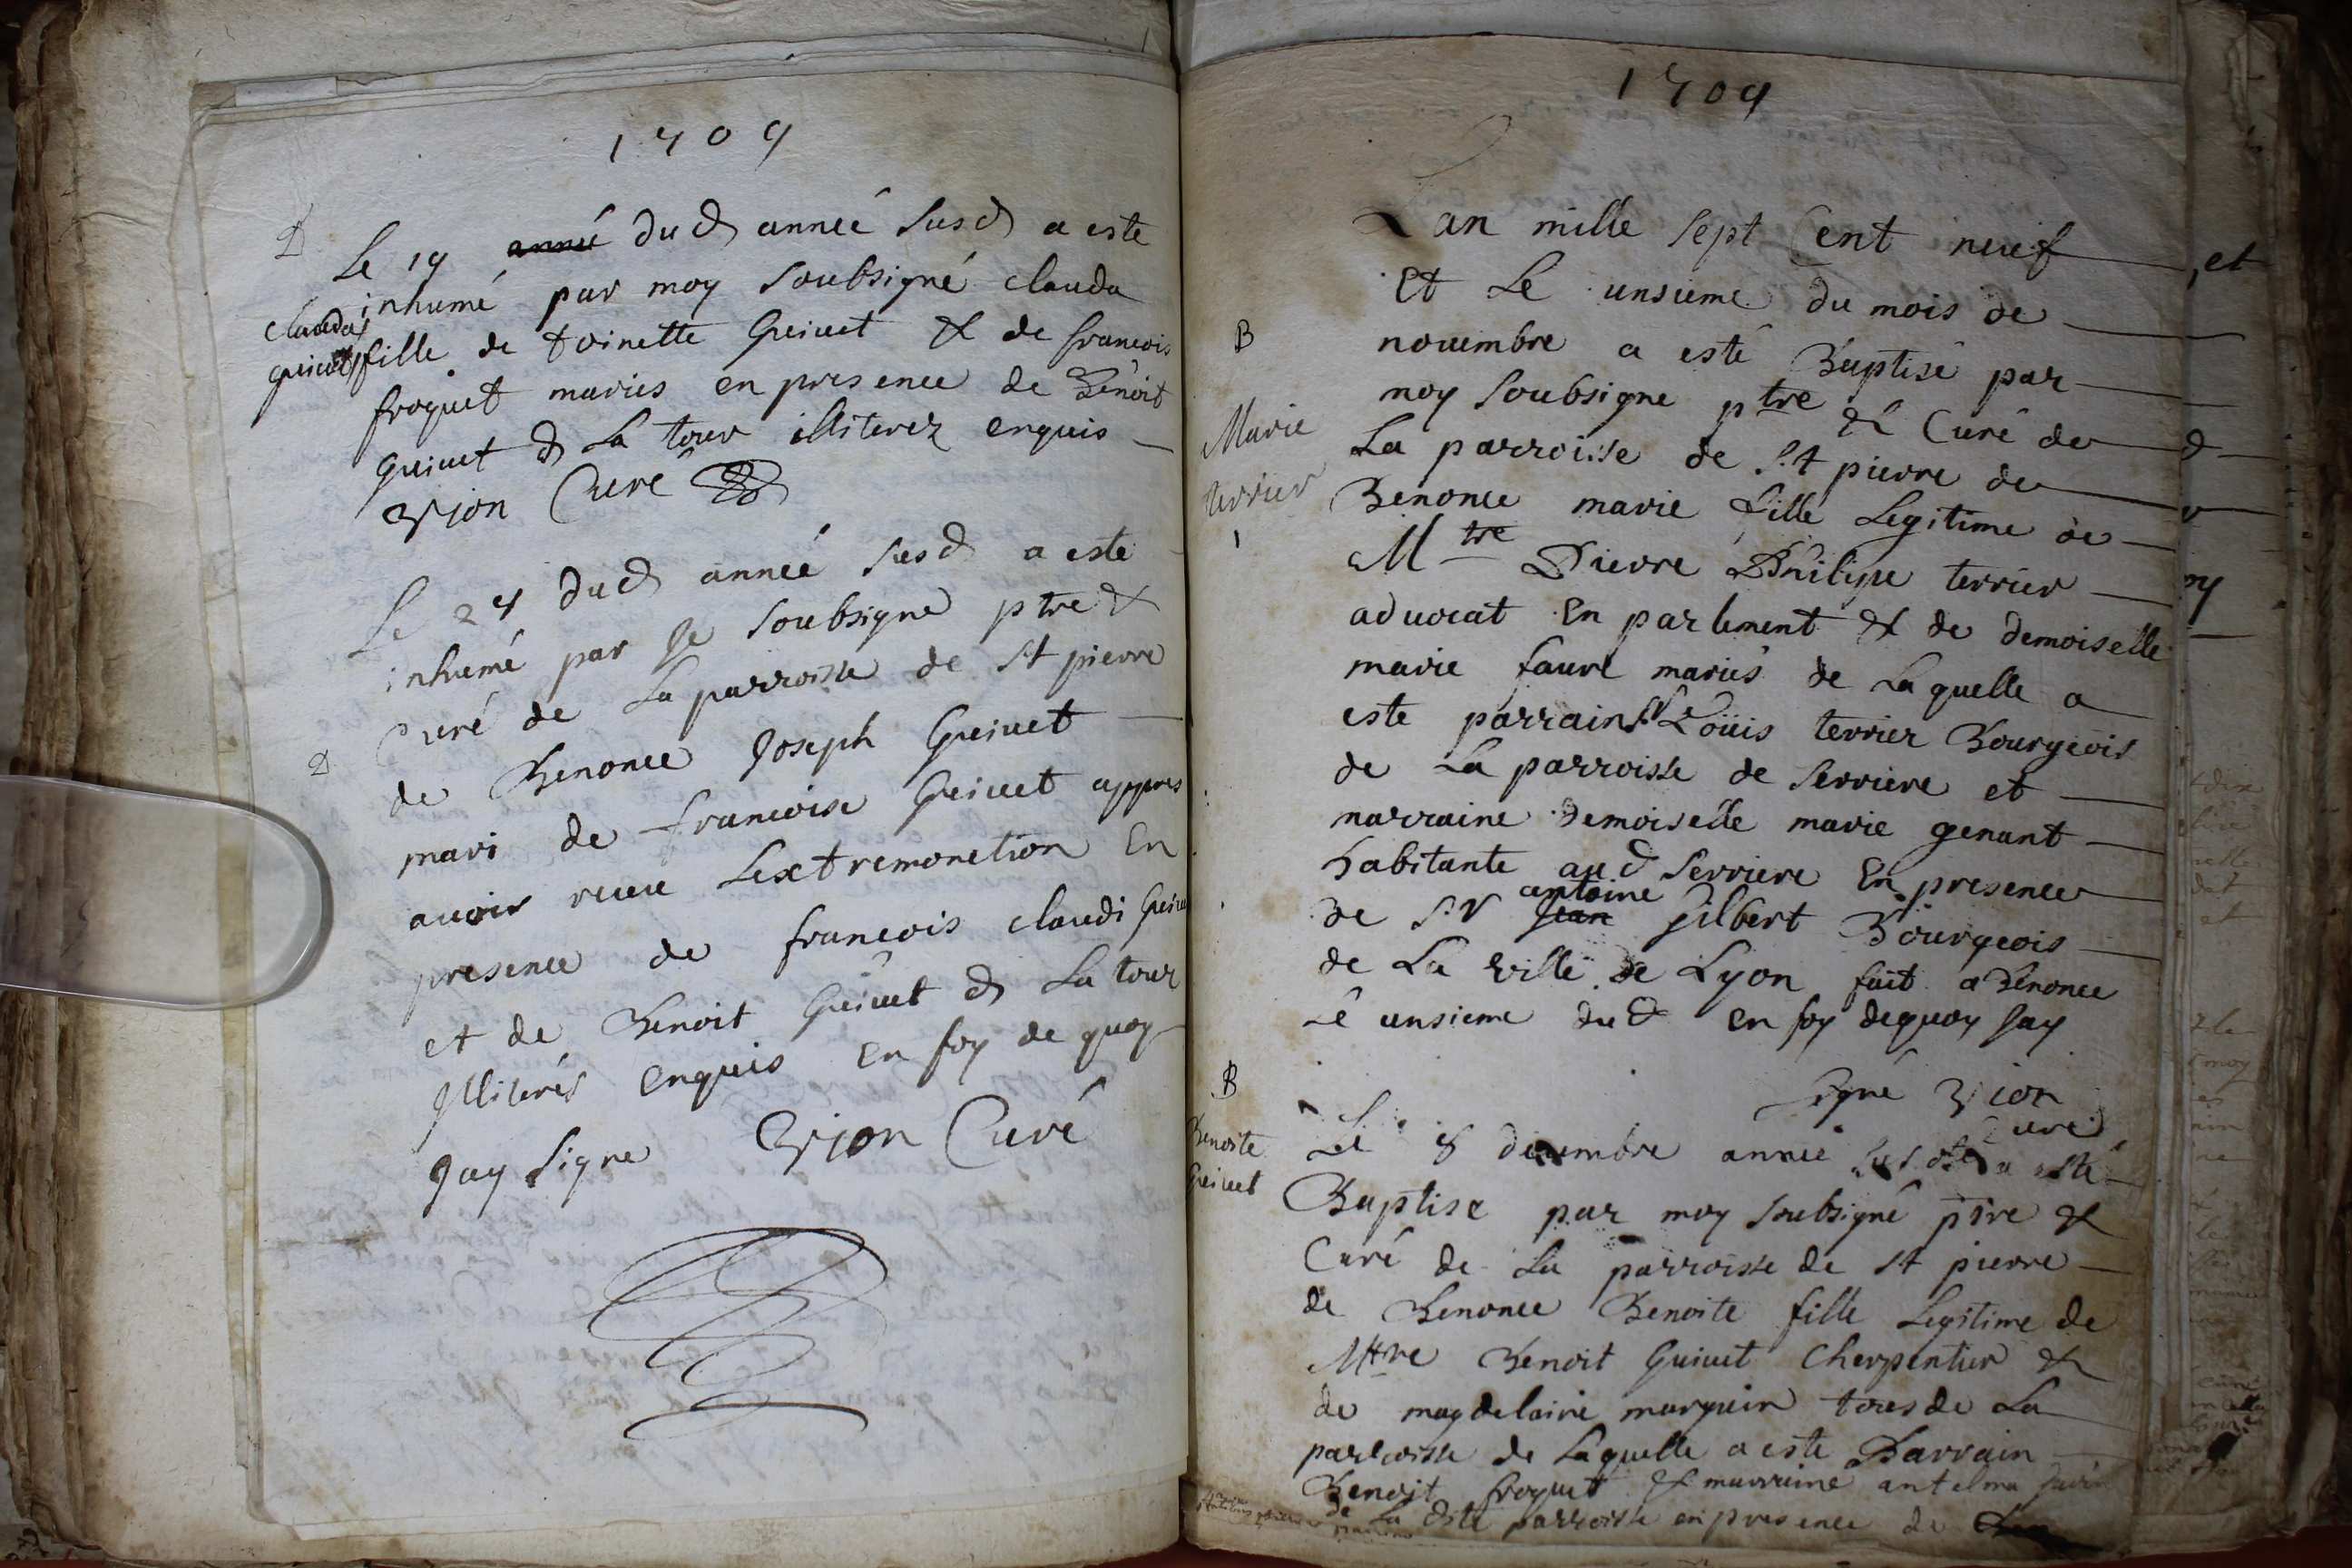 1709
D
Le 19 année dud année susd a este
inhumé par moy soubsigné clauda
clauda
guinet
fille de toinette Guinet & de francois
froquet maries en presence de Benoit
guinet d La tour illiterez enquis
Vion Curé
Le 24 dud année susd a este
inhumé par Je soubsigne ptre &
Curé de La parroisse de St pierre
D
de Benonce Joseph Guinet
mari de francoise Guinet appres
avoir receu Lextremonction En
presence de francois claudi
et de Benoit Guinet d La tour
Jlliterés enquis En foy de quoy
Jay signe Vion Curé
1709
Lan mille sept Cent neuf
Et Le unsieme du mois de
B
nouembre a esté Baptisé par
moy soubsigne ptre & Curé de
Marie
terrier
1
La parroisse de St pierre de
Benonce marie fille Legitime de
Mtre Pierre Philipe terrier
aduocat En parlement & de demoiselle
marie faure mariés de Laquelle a
este parrain Sr Loüis terrier Bourgeois
de La parroisse de Serriere et
marraine Demoiselle marie genant
habitante aud Serriere En presence
de Sr Jean antoine Gilbert Bourgeois
de La ville de Lyon fait a Benonce
Le unsieme dud En foy dequoy Jay
signé Vion
Curé
B
Benoite
Guinet
Le 8 decembre année susdte a esté
Baptise par moy soubsigné ptre &
Curé de La parroisse de St pierre
de Benonce Benoite fille Legitime de
Mtre Benoit Guinet Cherpentier &
de magdelaine marguin tous de La
parroisse de Laquelle a este Parrain
Benoit froquet & marraine antelma
de La dite parroisse en presence de